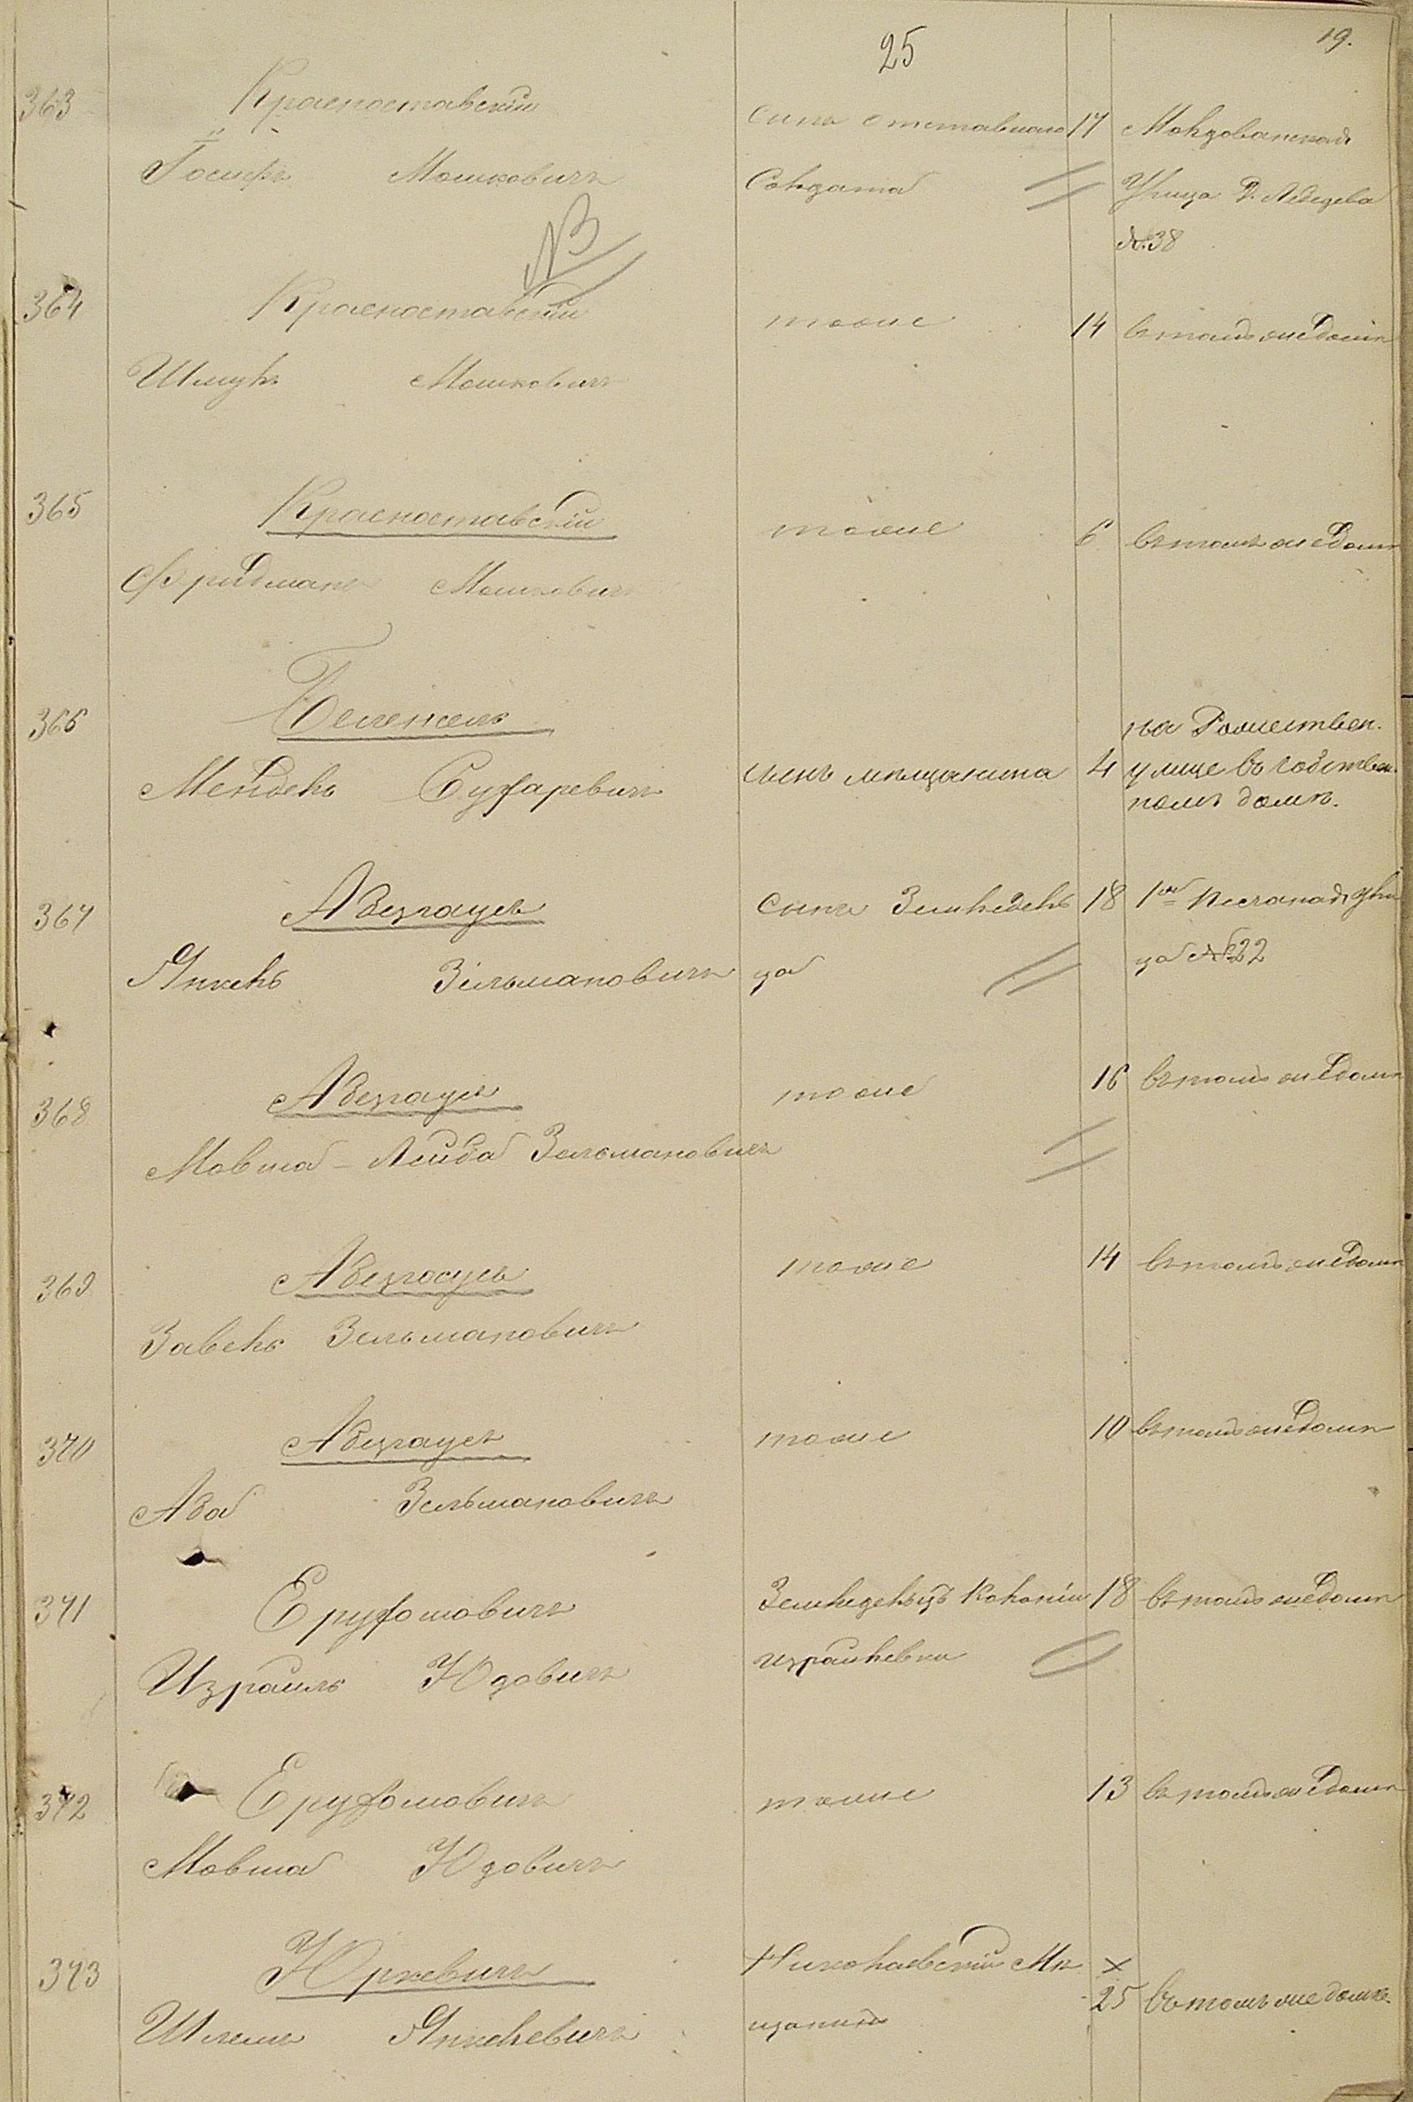 25
19.
363
Красноставскій
Іосифъ Мошковичъ
сынъ отставнаго
Солдата
17
Молдованская
Улица д. Лебедева
№ 38
NB
364
Красноставскій
Шмулъ Мошковичъ
тоже
14
въ томъ же домѣ
365
Красноставскій
Фридманъ Мошковичъ
тоже
6
въ томъ же домѣ
366
Мендель
сынъ мѣщанина
4
на Рожествен.
улице въ собствен.
номъ домѣ.
367
Абезгаусъ
Янкель Зельмановичъ
сынъ Землѣдель
ца
18
1ая Песчаная ули
ца № 22
368
Абезгаусъ
Мовша-Лейба Зельмановичъ
тоже
16
въ томъ же домѣ
369
Абезгаусъ
Завель Зельмановичъ
тоже
14
въ томъ же домѣ
370
Абезгаусъ
Аба Зельмановичъ
тоже
10
въ томъ же домѣ
371
Еруфомовичъ
Израиль Юдовичъ
Землѣделецъ Колоніи
Израилевки
18
въ томъ же домѣ
372
Еруфомовичъ
Мовша Юдовичъ
тоже
13
въ томъ же домѣ
373
Юркевичъ
Шлема Янкелевичъ
Николаевскій Мѣ
щанинъ
×
25
въ томъ же домѣ.